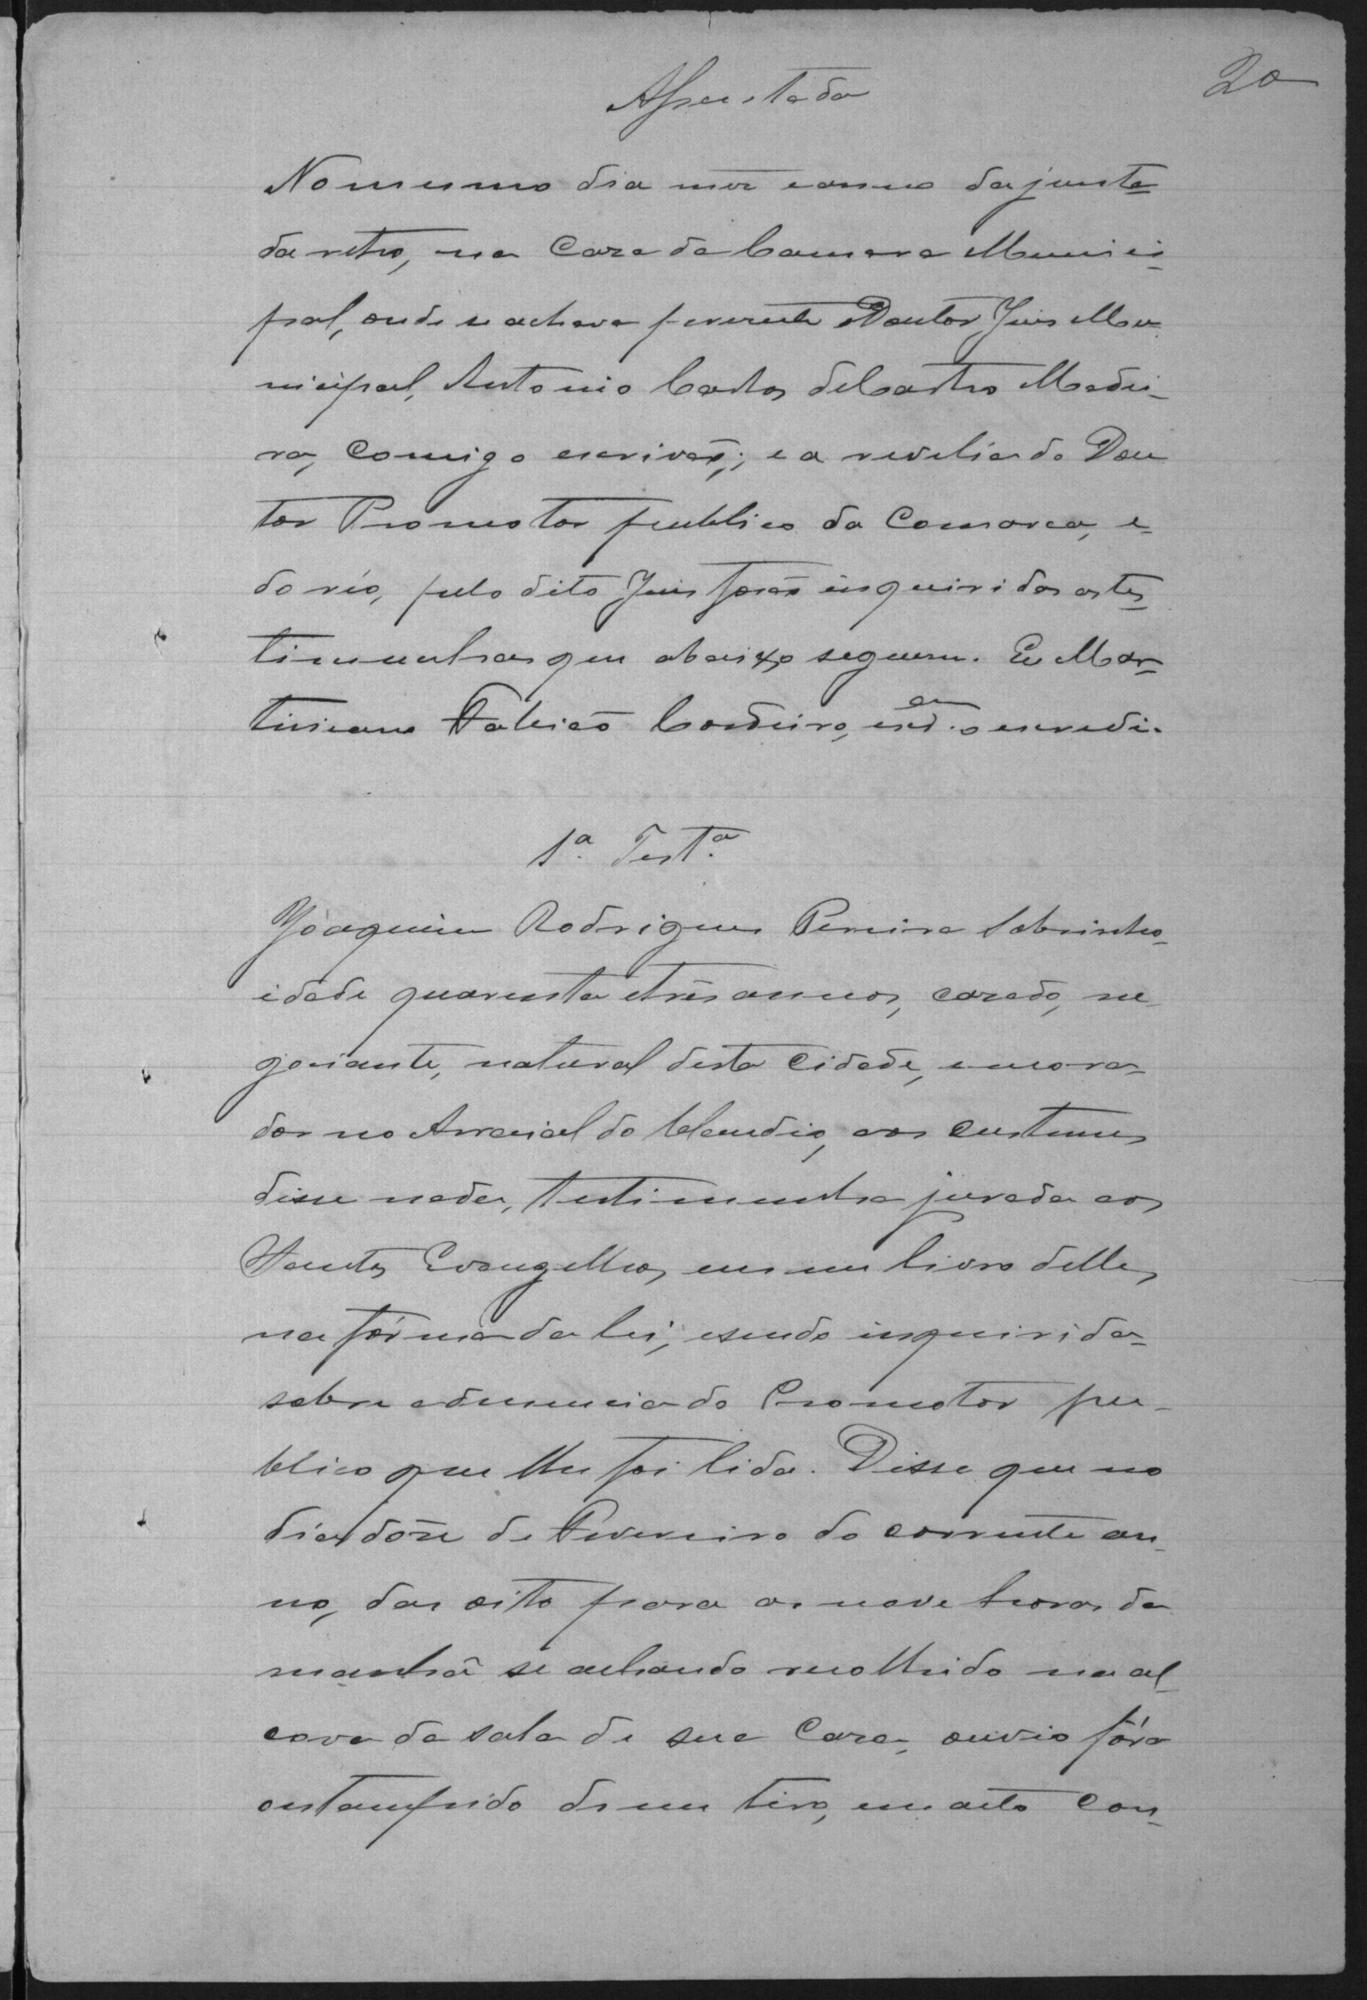 20
Assentada
No mesmo dia mez e anno da junta-
da retro, na Caza da Camara Munici-
pal, onde se achava prezente o Doutor Juis Mu-
nicipal, Antonio Carlos de Castro Madei-
ra, Comigo escrivaõ; e a revelia do Dou
tor Promotor publico da Comarca, e
do réo, pelo dito Juis foraõ inqueridas as tes-
timunhas que abaixo seguem. Eu Mar-
tiniano Fabiaõ Cordeiro, o escrevi.
1ª Testª
Joaquim Rodrigues Pereira Sobrinho
idade quarenta e três annos, cazado, ne-
gociante, natural desta Cidade, e mora-
dor no Arraial do Claudio, aos custumes
disse nada, testimunha jurada aos
Santos Evangelhos, em um livro delles,
na fórma da lei, e sendo inquirida
sobre a denuncia do Promotor pu-
blico que lhe foi lida. Disse que no
dia doze de Fevereiro do corrente an-
no, das oito para as nove horas da
manhã se achando recolhido na al-
cova da sala de sua Caza, ouvio fóra
o estampido de um tiro, em acto con-